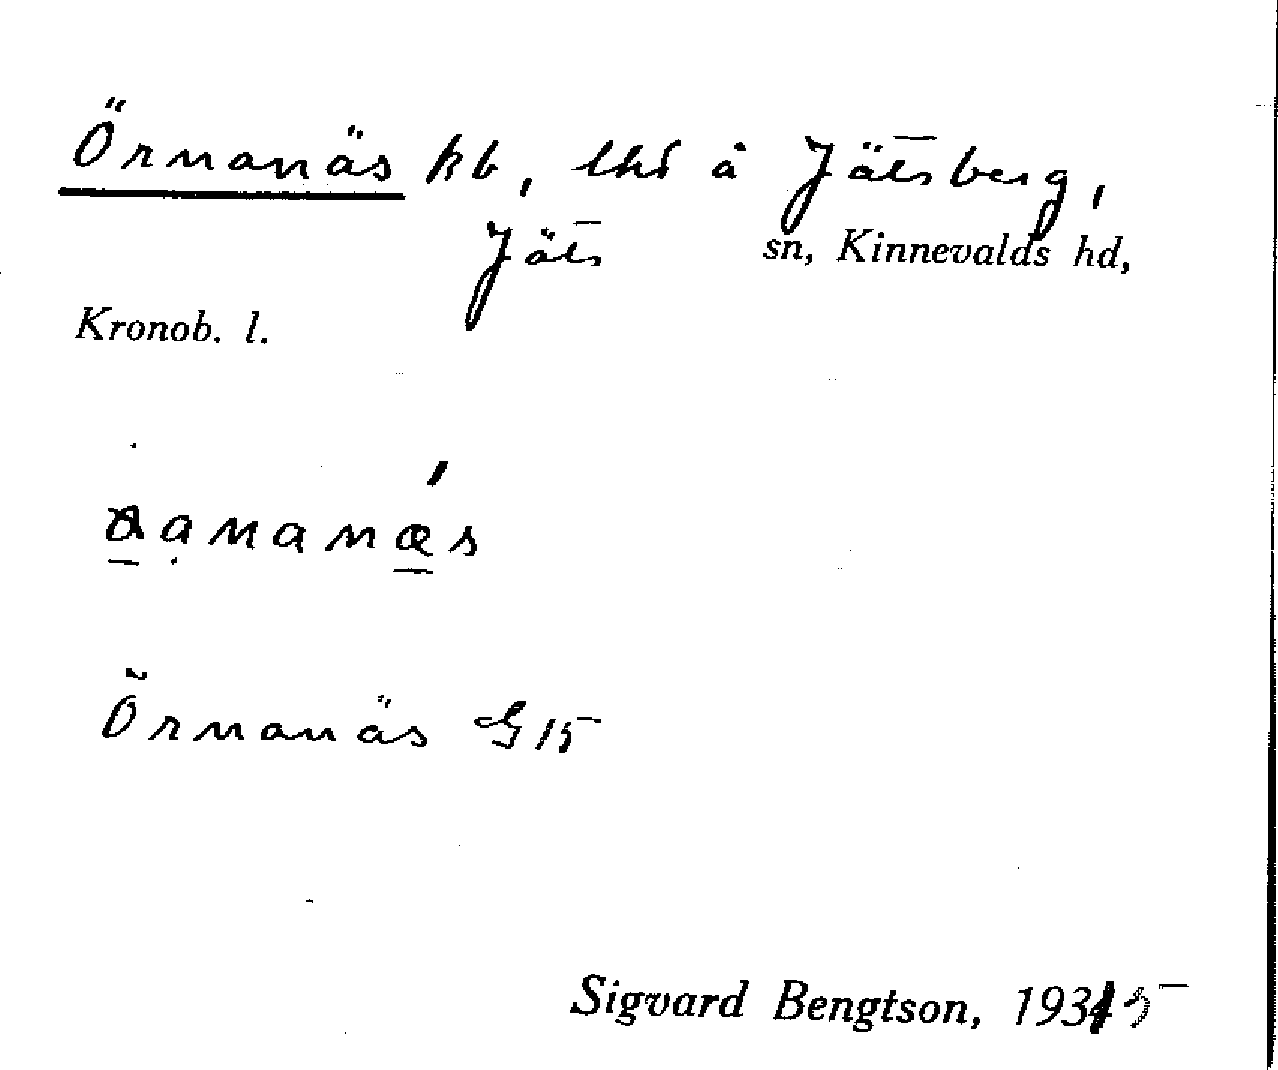 Örnanäs kb, lhd å Jätsberg,
Jäts sn, Kinnevalds hd,
Kronob. l.
Örnanäs G 15
Sigvard Bengtson, 1935